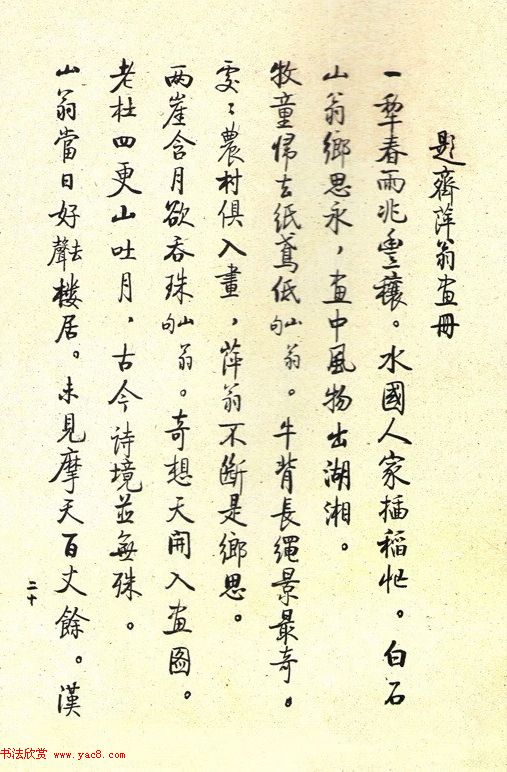 題齊萍翁畫冊
一犂春雨兆豐穰。水國人家插稻忙。白石
山翁鄉思永，畫中風物出湖湘。
牧童歸去紙鳶低山翁句。牛背長繩景最奇。
處〻農村俱入畫，萍翁不斷是鄉思。
两崖含月欲吞珠山翁句。奇想天開入畫圖。
老杜四更山吐月，古今詩境並無殊。
山翁當日好去聲樓居。未見摩天百丈餘。漢
二十
书法欣赏 www.yac8.com